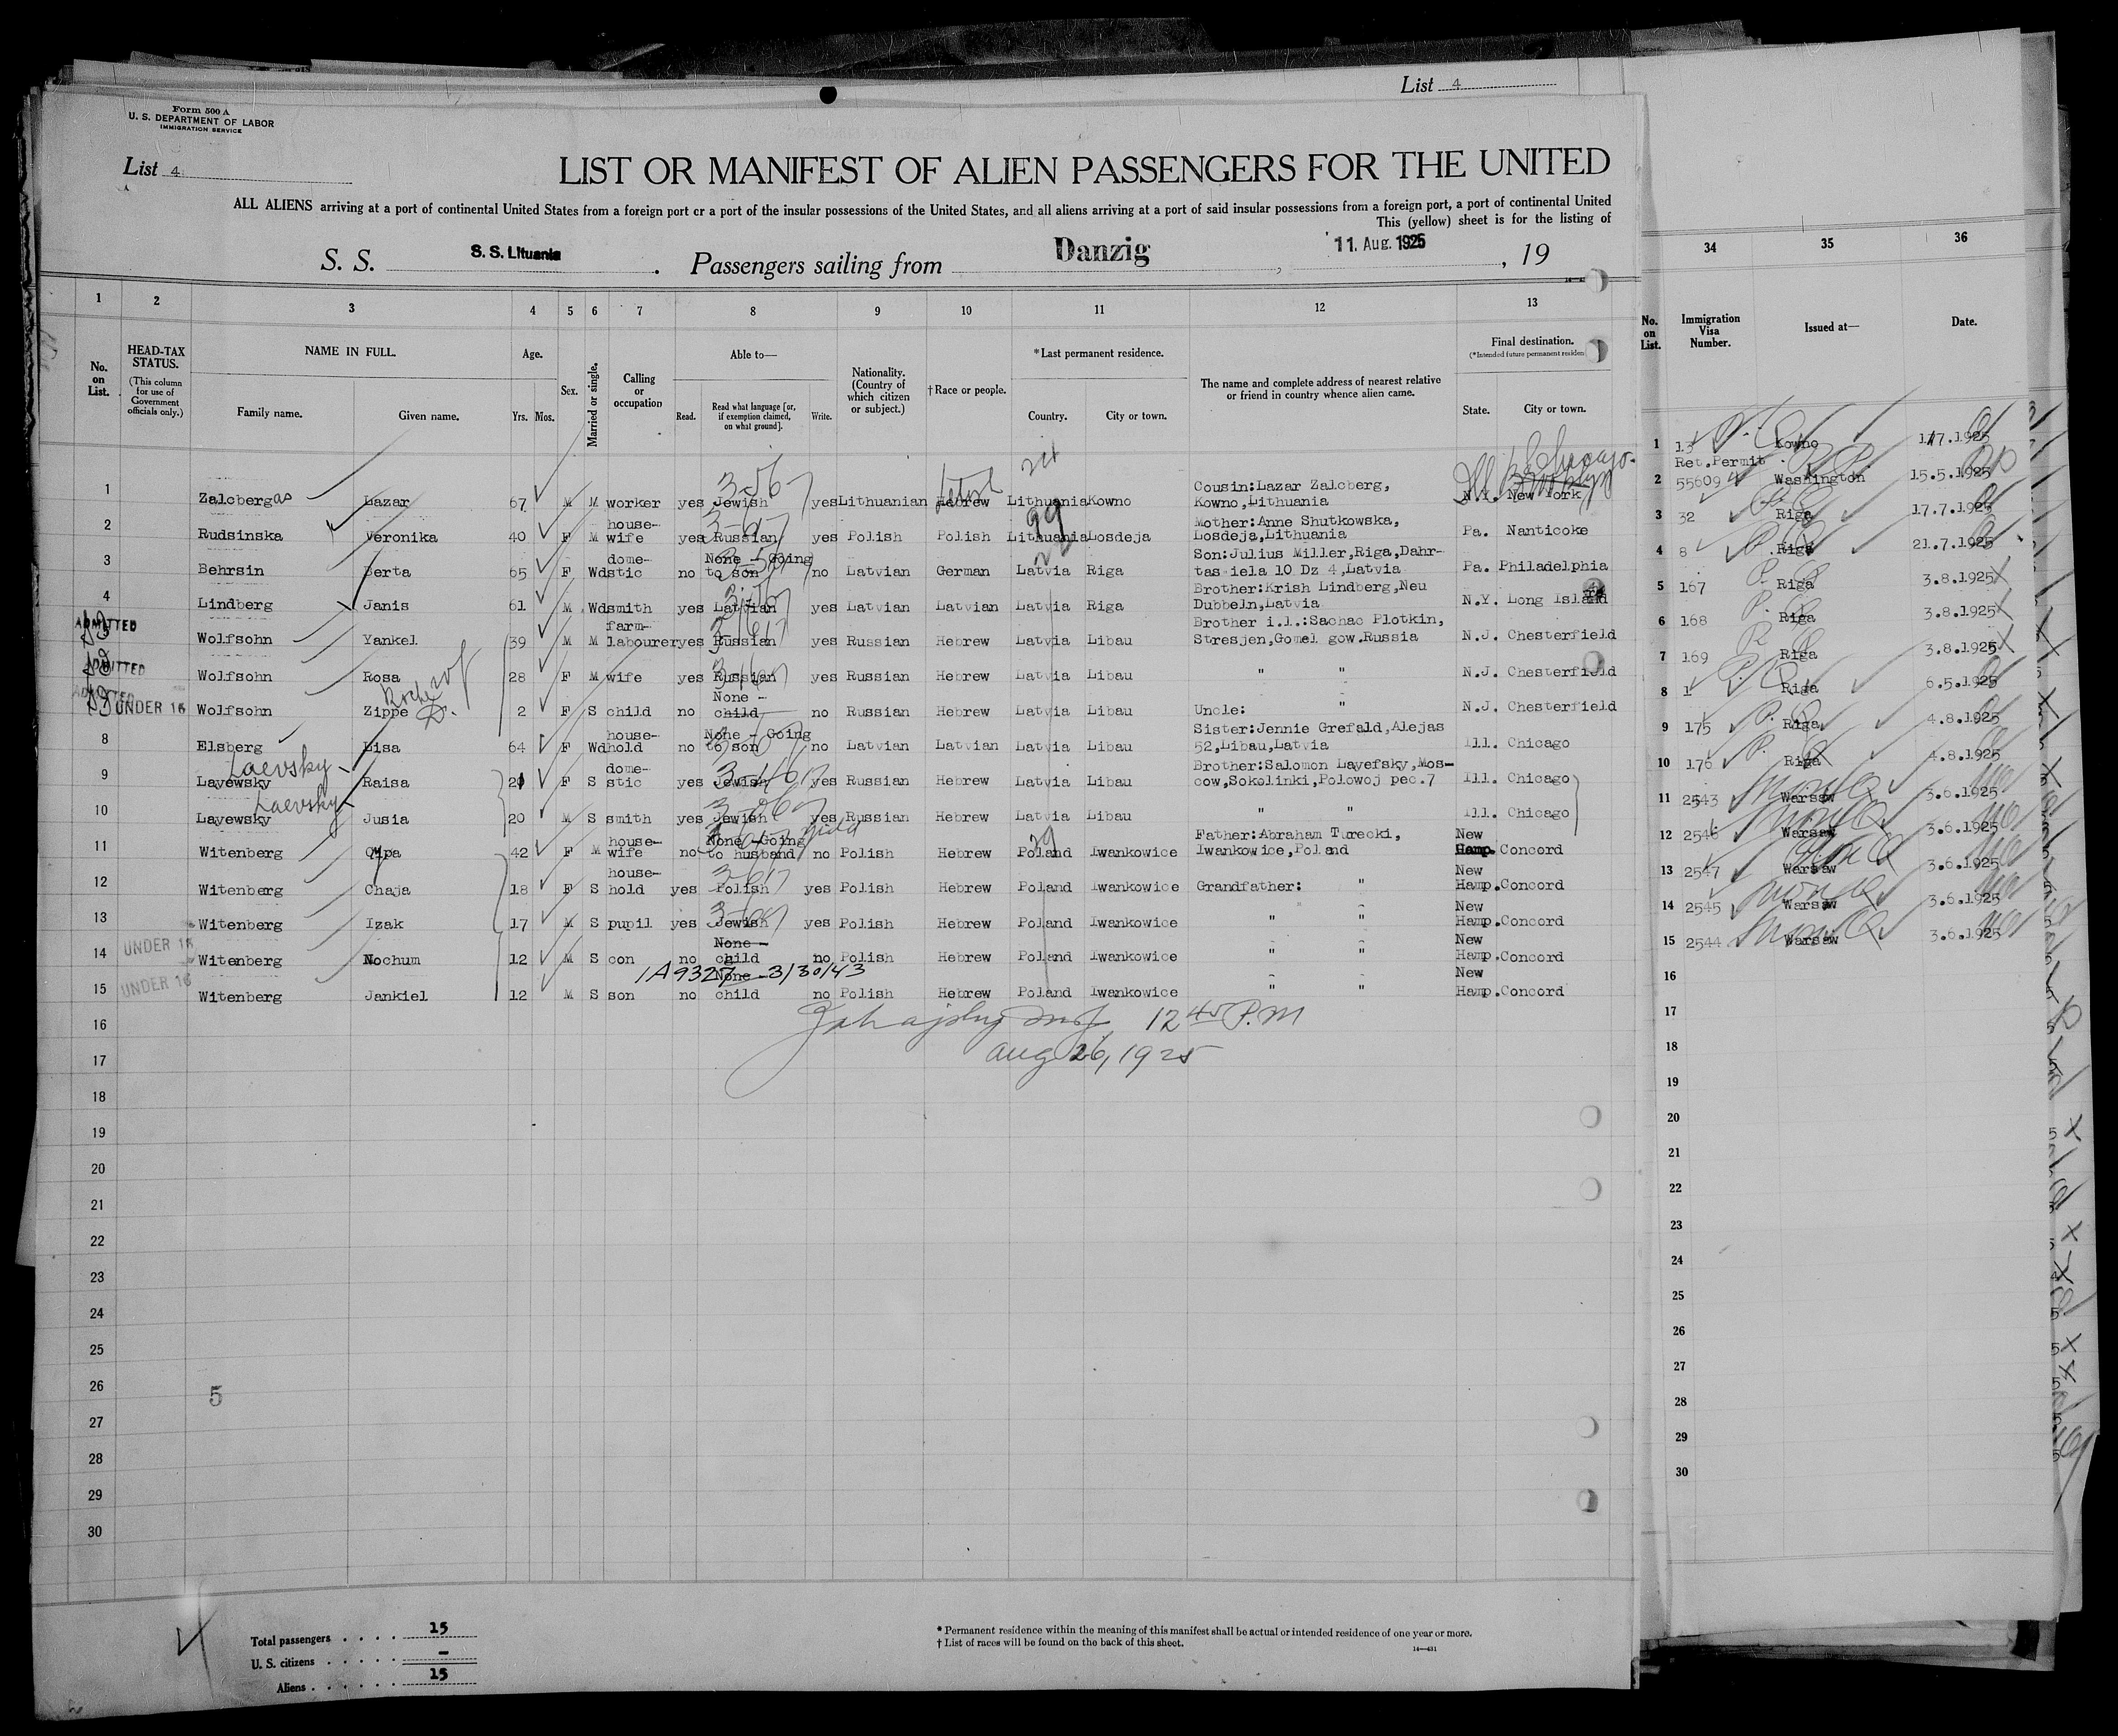 List 4
Form 500 A
U. S. DEPARTMENT OF LABOR
IMMIGRATION SERVICE
List 4
LIST OR MANIFEST OF ALIEN PASSENGERS FOR THE UNITED
ALL ALIENS arriving at a port of continental United States from a foreign port or a port of the insular possessions of the United States, and all aliens arriving at a port of said insular possessions from a foreign port, a port of continental United
This (yellow) sheet is for the listing of
S. S. S. S. Lituania . Passengers sailing from Danzig , 11. Aug. 1925 , 19
1 2 3 4 5 6 7 8 9 10 11 12 13
No. on List.
HEAD-TAX STATUS.
(This column for use of Government officials only.)
NAME IN FULL.
Family name. Given name.
Age.
Yrs. Mos.
Sex.
Married or single.
Calling or occupation
Able to—
Read. Read what language [or, if exemption claimed, on what ground]. Write.
Nationality. (Country of which citizen or subject.)
† Race or people.
* Last permanent residence.
Country. City or town.
The name and complete address of nearest relative or friend in country whence alien came.
Final destination.
(* Intended future permanent residen
State. City or town.
24
Chicago
1 Zalcbergas Lazar 67 M M worker yes Jewish yes Lithuanian Hebrew Lithuania Kowno Cousin:Lazar Zalcberg, Kowno,Lithuania N.Y. New York
2 Rudsinska Veronika 40 F M house-wife yes Russian yes Polish Polish Lithuania Losdeja Mother:Anne Shutkowska, Losdeja,Lithuania Pa. Nanticoke
3 Behrsin Berta 65 F Wd dome-stic no None - Going to son no Latvian German Latvia Riga Son:Julius Miller,Riga,Dahr-tas iela 10 Dz 4,Latvia Pa. Philadelphia
4 Lindberg Janis 61 M Wd smith yes Latvian yes Latvian Latvian Latvia Riga Brother:Krish Lindberg,Neu Dubbeln,Latvia N.Y. Long Island
ADMITTED Wolfsohn Yankel 39 M M farm-labourer yes Russian yes Russian Hebrew Latvia Libau Brother i.l.:Sachac Plotkin, Stresjen,Gomel gow.Russia N.J. Chesterfield
ADMITTED Wolfsohn Rosa 28 F M wife yes Russian yes Russian Hebrew Latvia Libau " " N.J. Chesterfield
ADMITTED UNDER 16 Wolfsohn Zippe 2 F S child no None - child no Russian Hebrew Latvia Libau Uncle: " N.J. Chesterfield
8 Elsberg Lisa 64 F Wd house-hold no None - Going to son no Latvian Latvian Latvia Libau Sister:Jennie Grefald,Alejas 52,Libau,Latvia Ill. Chicago
Laevsky
9 Layewsky Raisa 21 F S dome-stic yes Jewish yes Russian Hebrew Latvia Libau Brother:Salomon Layefsky,Mos-cow,Sokolinki,Polowoj pec.7 Ill. Chicago
Laevsky
10 Layewsky Jusia 20 M S smith yes Jewish yes Russian Hebrew Latvia Libau " " Ill. Chicago
11 Witenberg 42 F M house-wife no None - Going to husband no Polish Hebrew Poland Iwankowice Father:Abraham Turecki, Iwankowice,Poland New Hamp. Concord
12 Witenberg Chaja 18 F S house-hold yes Polish yes Polish Hebrew Poland Iwankowice Grandfather: " New Hamp. Concord
13 Witenberg Izak 17 M S pupil yes Jewish yes Polish Hebrew Poland Iwankowice " " New Hamp. Concord
UNDER 16
14 Witenberg Nochum 12 M S con no None - child no Polish Hebrew Poland Iwankowice " " New Hamp. Concord
1A9327 - 3/30/43
UNDER 16
15 Witenberg Jankiel 12 M S son no None - child no Polish Hebrew Poland Iwankowice " " New Hamp. Concord
16
12 45 P.M
17
Aug 26, 1925
18
19
20
21
22
23
24
25
26
5
27
28
29
30
Total passengers . . . . 15
U. S. citizens . . . . . –
Aliens . . . . . . 15
* Permanent residence within the meaning of this manifest shall be actual or intended residence of one year or more.
† List of races will be found on the back of this sheet.
14—431
34 35 36
No. on List. Immigration Visa Number. Issued at— Date.
1 13 Kowno 17.7.1925
2 Ret.Permit 55609 Washington 15.5.1925
3 32 Riga 17.7.1925
4 8 Riga 21.7.1925
5 167 Riga 3.8.1925
6 168 Riga 3.8.1925
7 169 Riga 3.8.1925
8 1 Riga 6.5.1925
9 175 Riga 4.8.1925
10 176 Riga 4.8.1925
11 2543 Warsaw 3.6.1925
12 2546 Warsaw 3.6.1925
13 2547 Warsaw 3.6.1925
14 2545 Warsaw 3.6.1925
15 2544 Warsaw 3.6.1925
16
17
18
19
20
21
22
23
24
25
26
27
28
29
30